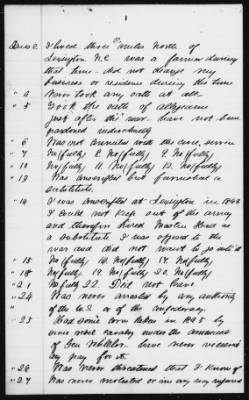 I lived three miles north of
Lexington N.C. was a farmer during
that time - did not change my
business or residence during the time
" 4 Never took any oath at all
" 5 Took the oath of allegiance
just after the war. have not been
pardoned individually
" 6 Was not connected with the civil service
" 7 No (fully) 8. No (fully) 9. No (fully)
" 10 No (fully) 11. No (fully) 12. No (fully)
" 13 Was conscripted but furnished a
substitute.
" 14 I was conscripted at Lexington in 186
I could not keep out of the army
and therefore hired
a substitute I was opposed to the
war and did not want to go into it
" 15 No (fully) 16. No (fully) 17. No (fully)
" 18 No (fully) 19. No (fully) 20. No (fully)
" 21 No fully 22. Did not
" 24 Was never arrested by any authority
of the U.S. or of the confederacy.
" 25 Had some corn taken in 1865 by
cavalry under the command
of Gen Wheeler. have never received
any pay for it.
" 26 Was never threatened that I know of
" 27 Was never molested or in any way injured